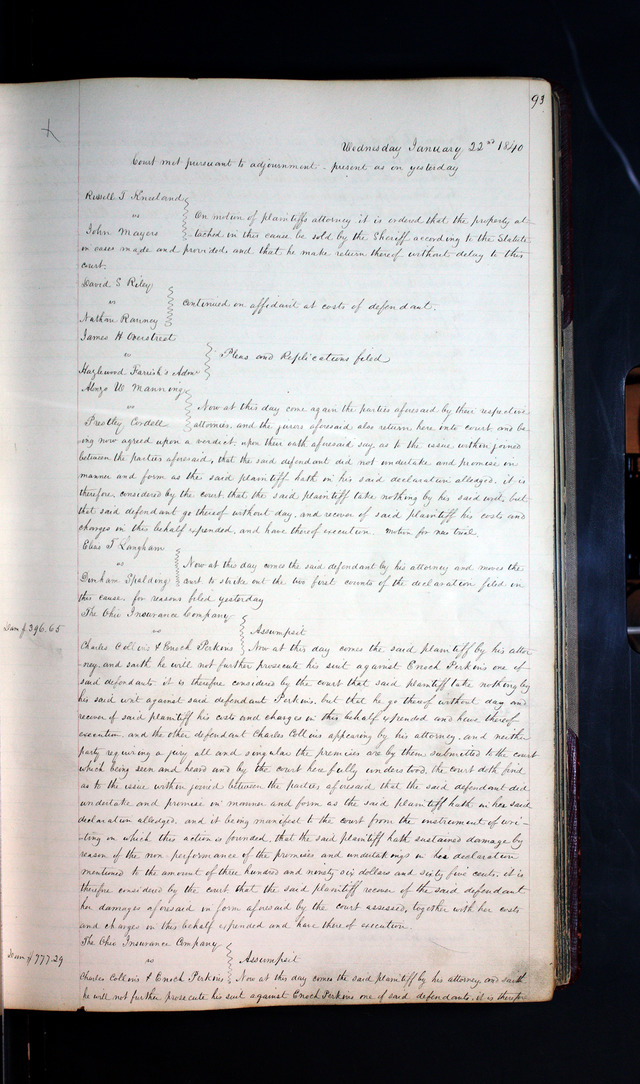 93
Wednesday January 22nd 1840
Court met pursuant to adjournment - present as on yesterday
Russell T Kneeland
vs
On motion of plaintiffs attorney it is ordered that the property at-
John Mayers
tached in this cause be sold by the Sheriff according to the Statute
in cases made and provided, and that he make return thereof without delay to this
court.
David S Riley
vs
continued on affidavit at costs of defendant.
Nathan Ranney
James H Overstreet
vs
Pleas and Replications filed
Hazlewood Farrish's Admr
Alonzo W Manning
vs
Now at this day come again the parties aforesaid by their respective
Prestley Cordell
attornies, and the jurors aforesaid also return here into court and be
ing now agreed upon a verdict, upon their oath aforesaid say, as to the issue within joined
between the parties aforesaid, that the said defendant did not undertake and promise in
manner and form as the said plaintiff hath in his said declaration alledged. it is
therefore considered by the court that the said plaintiff take nothing by his said writ, but
that said defendant go thereof without day, and recover of said plaintiff his costs and
charges in this behalf expended, and have thereof execution. motion for new trial.
Elias T Langham
vs
Now at this day comes the said defendant by his attorney and moves the
Dinham Spalding
court to strike out the two first counts of the declaration filed in
this cause, for reasons filed yesterday
The Ohio Insurance Company
Dam $396.65
vs
Assumpsit
Charles Collins & Enoch Perkins
Now at this day comes the said plaintiff by his attor
ney, and saith he will not further prosecute his suit against Enoch Perkins one of
said defendants. it is therefore considered by the court that said plaintiff take nothing by
his said writ against said defendant Perkins. but that he go thereof without day and
recover of said plaintiff his costs and charges in this behalf expended and have thereof
execution. and the other defendant Charles Collins appearing by his attorney. and neither
party requiring a jury all and singular the premises are by them submitted to the court
which being seen and heard and by the court here fully understood, the court doth find
as to the issue within joined between the parties aforesaid that the said defendant did
undertake and promise in manner and form as the said plaintiff hath in her said
declaration alledged. and it being manifest to the court from the instrument of wri-
-ting on which this action is founded, that the said plaintiff hath sustained damage by
reason of the non performance of the promises and undertakings in her declaration
mentioned to the amount of three hundred and ninety six dollars and sixty five cents. it is
therefore considered by the court that the said plaintiff recover of the said defendant
her damages aforesaid in form aforesaid by the court assessed, together with her costs
and charges in this behalf expended and have thereof execution.
The Ohio Insurance Company
Dam $777.29
vs
Assumpsit
Charles Collins & Enoch Perkins
Now at this day comes the said plaintiff by his attorney, and saith
he will not further prosecute his suit against Enoch Perkins one of said defendants. it is therefore